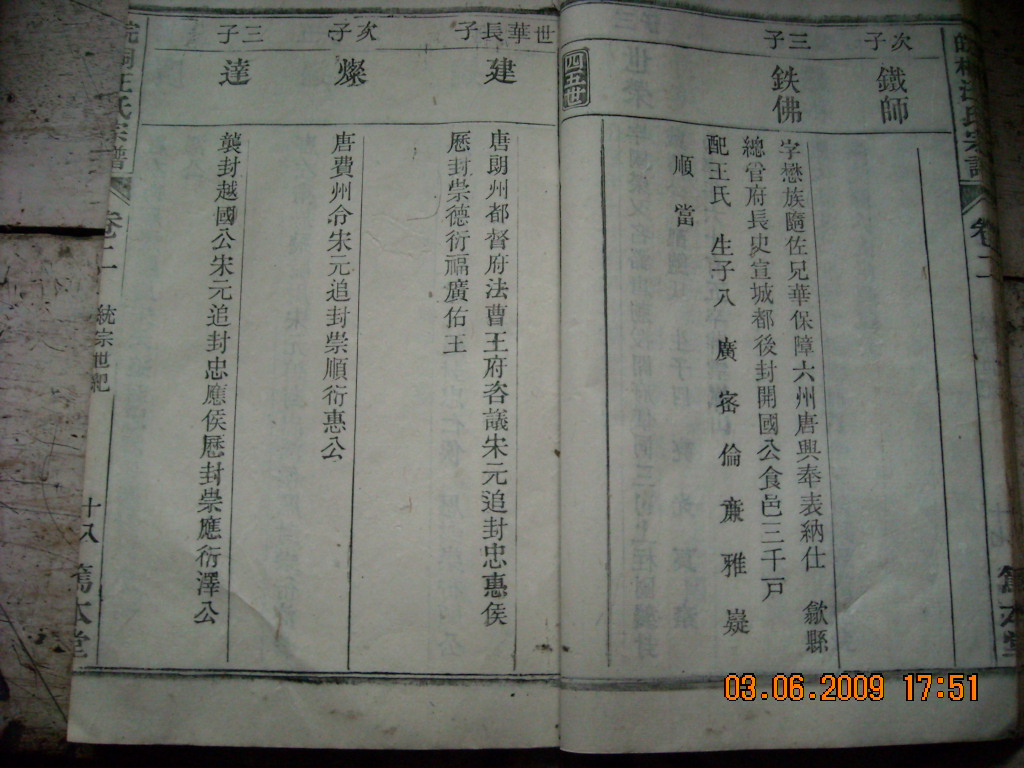 次子
鐵師
三子
鉄佛
字懋族隨佐兄華保障六州唐興奉表納仕 歙縣
總管府長史宣城都後封開國公食邑三千戸
配王氏 生子八 廣 宻 倫 亷 雅 嶷
順 當
四五世
世華長子
建
唐朗州都督府法曹王府咨議宋元追封忠惠侯
歷封崇德衍福廣佑王
次子
燦
唐費州令宋元追封崇順衍惠公
三子
達
襲封越國公宋元追封忠應侯歷封崇應衍澤公
皖桐汪氏宗譜
卷之二
統宗世紀
十八
篤本堂
卷二
篤本堂
03.06.2009 17:51